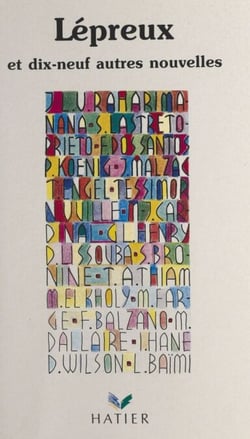 Lépreux
et dix-neuf autres nouvelles
J.L.V.RAHARIMA-
NANA•S.LASTRETO-
PRIETO•F.DOS SANTOS
P.KOENIG•MALZAC
T.INGEL•TESSIMOR
NUVILLE•M.CAR-
DINA•G.L.HENRY
D.ISSOUBA•S.BRO-
NINE•T.A.THIAM
M.ELKHOLY•M.FAR-
GE•F.BALZANO•M.
DALLAIRE•I.HANE
D.WILSON•L.BAÏMI
HATIER